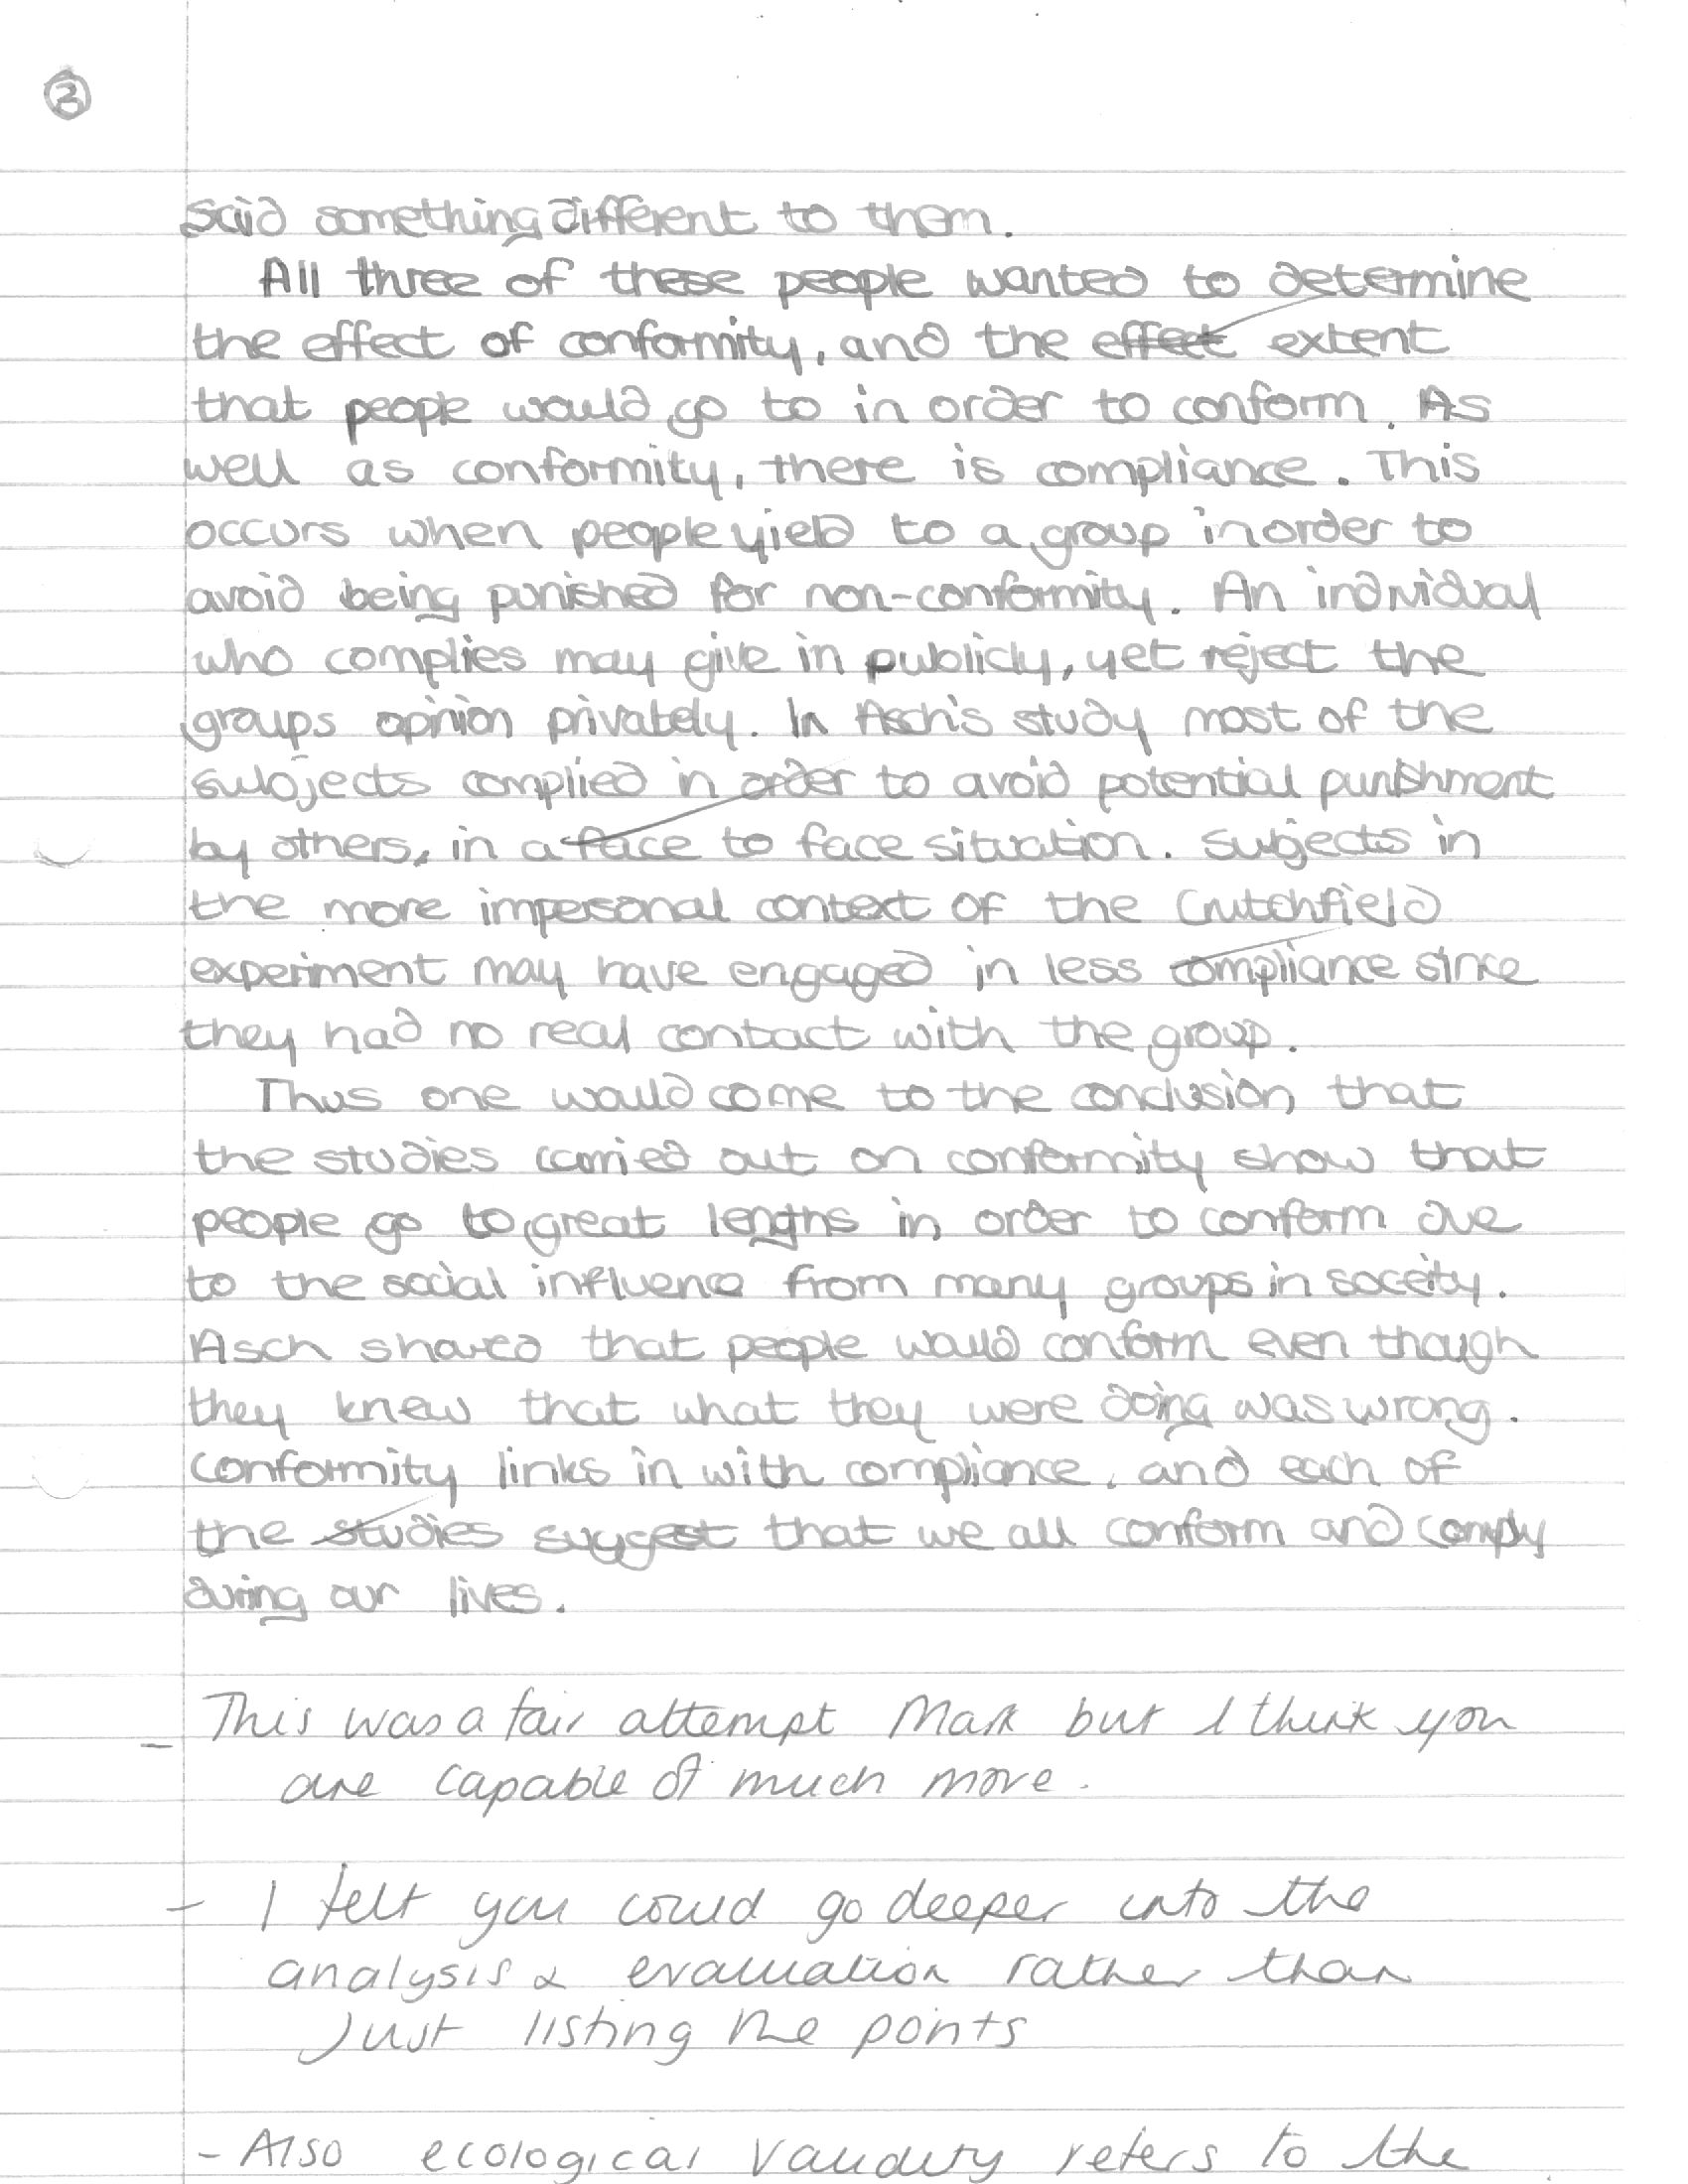 3
said something different to them.
All three of these people wanted to determine
the effect of conformity, and the effect extent
that people would go to in order to conform. As
well as conformity, there is compliance. This
occurs when people yield to a group in order to
avoid being punished for non-conformity. An individual
who complies may give in publicly, yet reject the
groups opinion privately. In Asch's study most of the
subjects complied in order to avoid potential punishment
by others, in a face to face situation. Subjects in
the more impersonal context of the Crutchfield
experiment may have engaged in less compliance since
they had no real contact with the group.
Thus one would come to the conclusion that
the studies carried out on conformity show that
people go to great lengths in order to conform due
to the social influence from many groups in soceity.
Asch showed that people would conform even though
they knew that what they were doing was wrong.
Conformity links in with compliance, and each of
the studies suggest that we all conform and comply
during our lives.
- This was a fair attempt Mark but I think you
are capable of much more.
- I felt you could go deeper into the
analysis & evaluation rather than
Just listing the points
- Also ecological validity refers to the